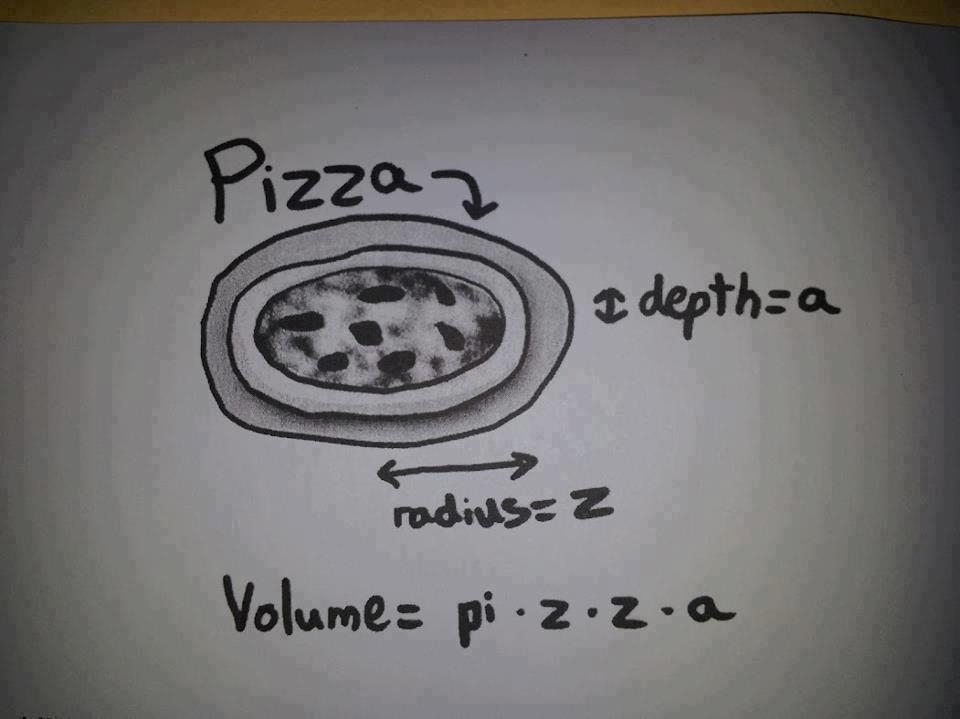 Pizza
depth=a
radius=z
Volume= pi·z·z·a